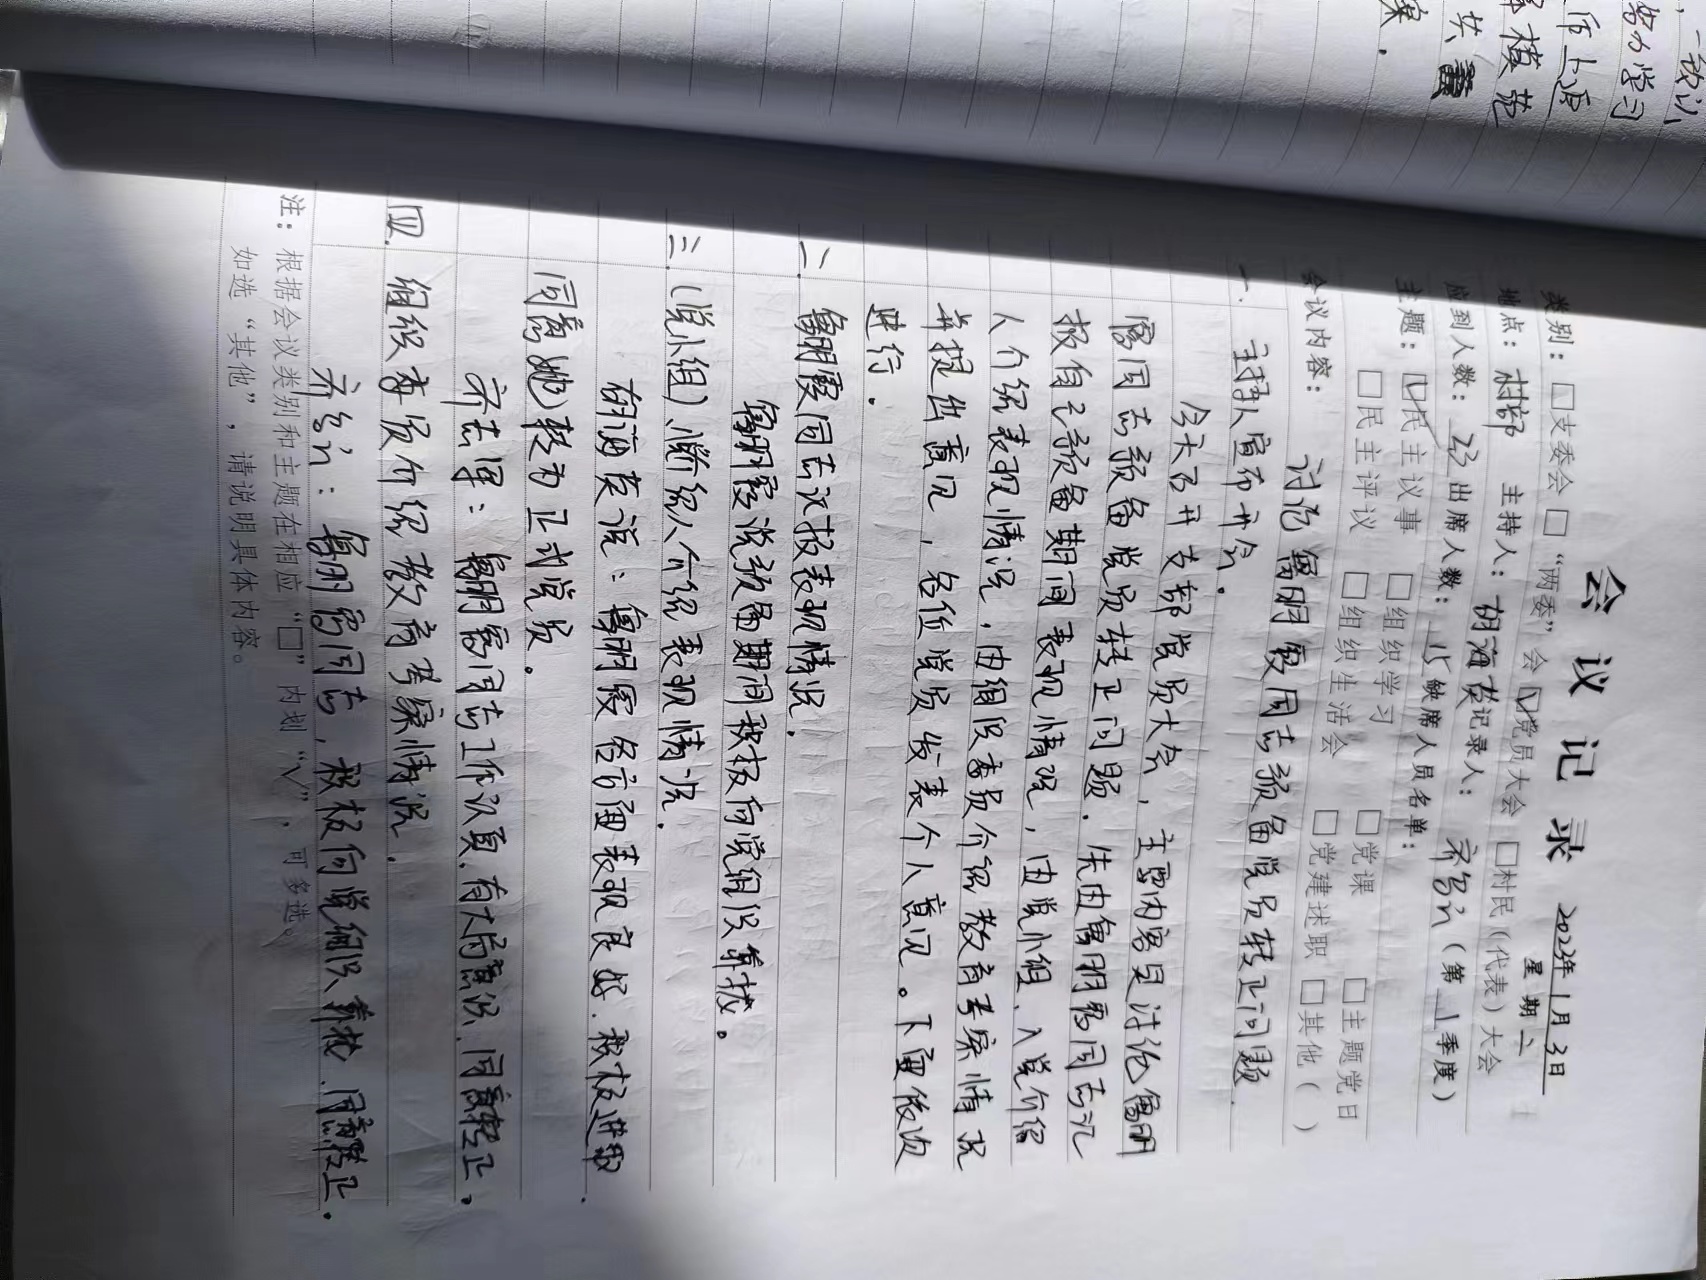 一致认
努力学习
历上源
模范
共
案.
会议记录
2023年1月3日
星期二
类别：□支委会 □“两委”会 ☑党员大会 □村民（代表）大会
地点：村部 主持人：胡海英 记录人：齐 （第1季度）
应到人数：23 出席人数：15 缺席人员名单：
主题：☑民主议事 □组织学习 □党课 □主题党日
□民主评议 □组织生活会 □党建述职 □其他（ ）
会议内容： 讨论 明霞同志预备党员转正问题.
一. 主持人宣布开会.
今天召开支部党员大会，主要内容是讨论 明
霞同志预备党员转正问题. 先由 明霞同志汇
报自己预备期间表现情况，由党小组、入党介绍
人介绍表现情况，由组织委员介绍教育考察情况
并提出意见，各位党员发表个人意见。下面依次
进行.
二. 明霞同志汇报表现情况.
明霞说预备期间积极向党组织靠拢。
三.（党小组）、介绍人介绍表现情况.
胡海英说： 明霞各方面表现良好. 积极进取.
同意她转为正式党员.
齐志军： 明霞同志工作认真. 有大局意识. 同意转正.
四. 组织委员介绍教育考察情况.
齐 ： 明霞同志，积极向党组织靠拢. 同意转正.
注：根据会议类别和主题在相应“□”内划“√”，可多选。
如选“其他”，请说明具体内容。